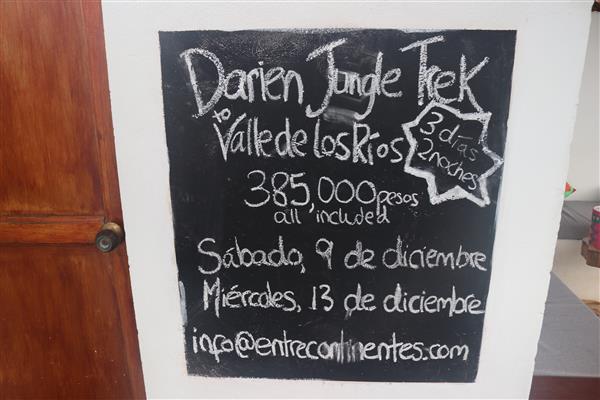 Darien Jungle Trek
to Valle de Los Ríos
3 días
2 noches
385,000 pesos
all included
Sábado, 9 de diciembre
Miércoles, 13 de diciembre
info@entrecontinentes.com